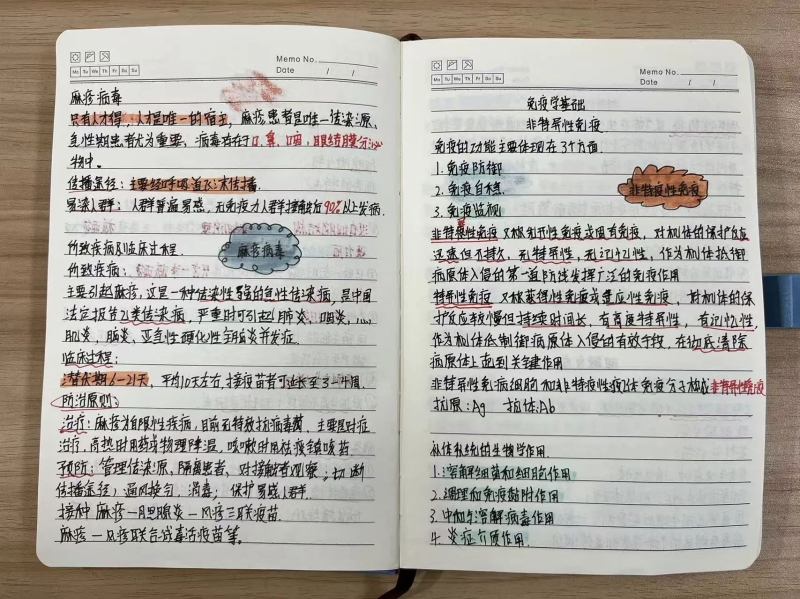 Memo No.
Mo Tu We Th Fr Sa Su
Date / /
麻疹病毒
只有人才得,人才是唯一的宿主,麻疹患者是唯一传染源、
急性期患者尤为重要,病毒存在于口、鼻、咽、眼结膜分泌
物中。
传播途径:主要经呼吸道飞沫传播.
易染人群:人群普遍易感,无免疫力人群接触后90%以上发病.
所致疾病及临床过程.
麻疹病毒
所致疾病:
主要引起麻疹,这是一种传染性强的急性传染病,是中国
法定报告乙类传染病,严重时可引起肺炎、咽炎、心
肌炎,脑炎、亚急性硬化性全脑炎并发症.
临床过程:
潜伏期6-21天,平均10天左右,接疫苗者可延长至3-4周.
防治原则:
治疗:麻疹为自限性疾病,目前无特效抗病毒药,主要是对症
治疗,高热时用药或物理降温,咳嗽时用祛痰镇咳药
预防:管理传染源、隔离患者、对接触者观察;切断
传播途径;通风换气,消毒;保护易感人群.
接种 麻疹-风疹三联疫苗.
麻疹-风疹联合减毒活疫苗等.
Memo No.
Mo Tu We Th Fr Sa Su
Date / /
免疫学基础
非特异性免疫.
免疫的功能主要体现在3个方面.
1.免疫防御
2.免疫自稳.
3.免疫监视
非特异性免疫
非特异性免疫 又称先天性免疫或固有免疫,对机体的保护反应
迅速但不持久,无特异性,无记忆性,作为机体抵御
病原体入侵的第一道防线发挥广泛的免疫作用
特异性免疫 又称获得性免疫或适应性免疫,对机体的保
护反应较慢但持续时间长,有高度特异性,有记忆性,
作为机体抵制御病原体入侵的有效手段,在彻底清除
病原体上面到关键作用
非特异性免疫细胞和非特异性免疫分子构成非特异性免疫
抗原:Ag 抗体:Ab
补体系统的生物学作用.
1.溶解细菌和细胞作用
2.调理和免疫黏附作用.
3.中和与溶解病毒作用
4.炎症介质作用.